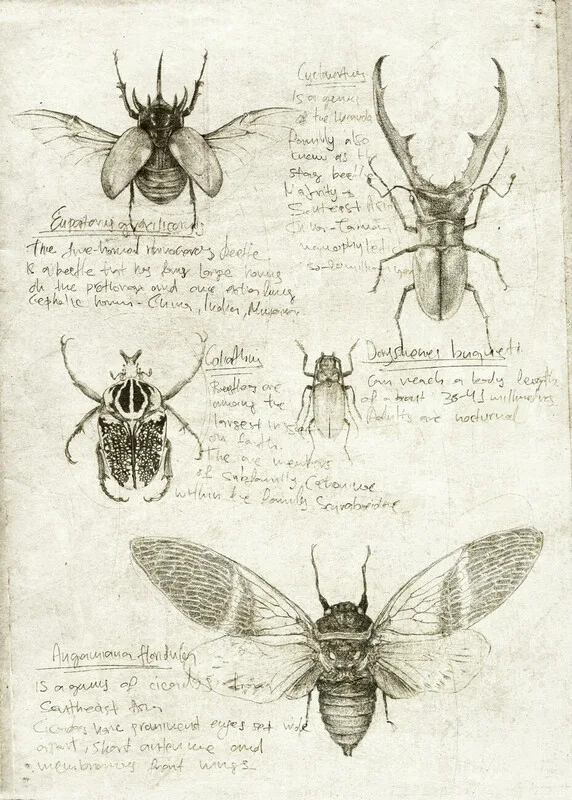 Eupatorus gracilicornis
The five-horned rhinoceros beetle
is a beetle that has four large horns
on the prothorax and one extra long
cephalic horn - China, India,
Cyclommatus
is a genus
of the
family also
as
stag beetle
Majority
Southeast Asia
Goliathus
Beetles are
among the
largest insects
on Earth.
The are members
of subfamily, Cetoniinae
within the family Scarabaeidae
Doryshenes bugueti
Can reach a body length
of about 38-41 millimetres
Adults are nocturnal
Angamiana floridula
is a genus of cicadas from
Southeast Asia
Cicadas have prominent eyes set wide
apart, short antennae and
membranous front wings